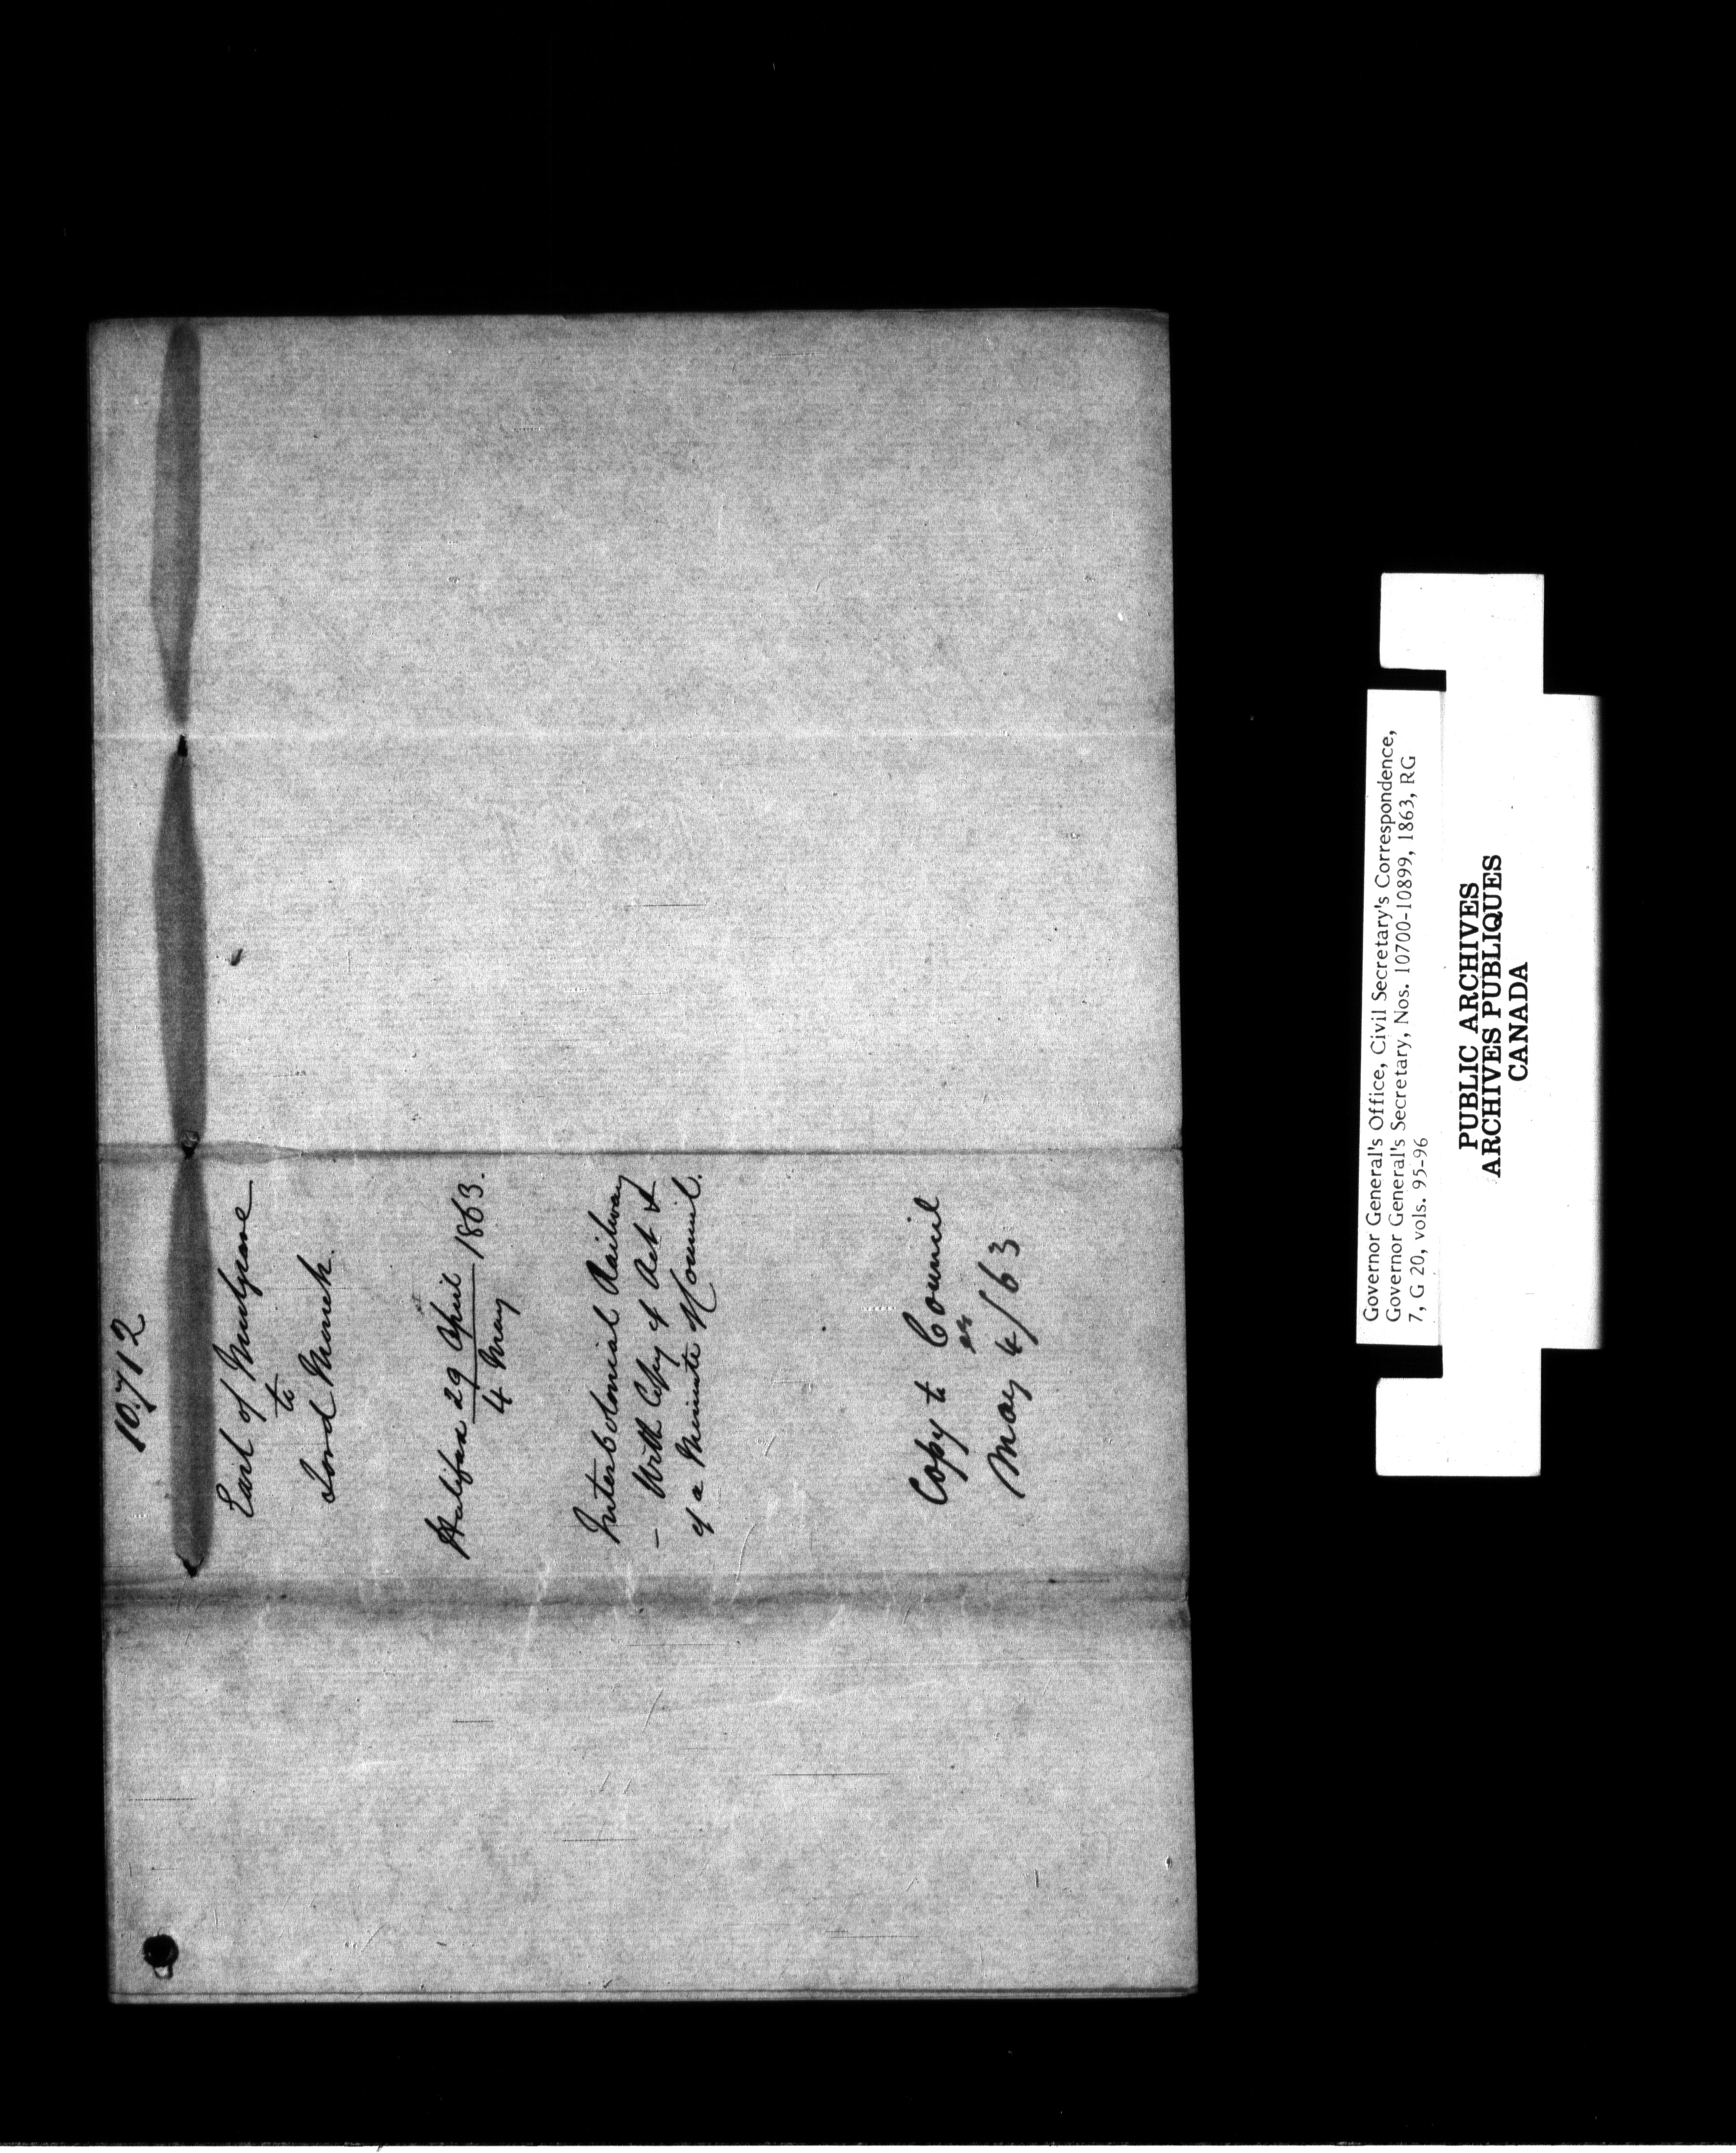 10.712
Earl of Mulgrave
to
Lord Monck.
Halifax 29 April 1863.
4 May
Intercolonial Railway
– With Copy of Act &
of a Minute of Council.
Copy to Council
May 4/63
Governor General's Office, Civil Secretary's Correspondence,
Governor General's Secretary, Nos. 10700-10899, 1863, RG
7, G 20, vols. 95-96
PUBLIC ARCHIVES
ARCHIVES PUBLIQUES
CANADA